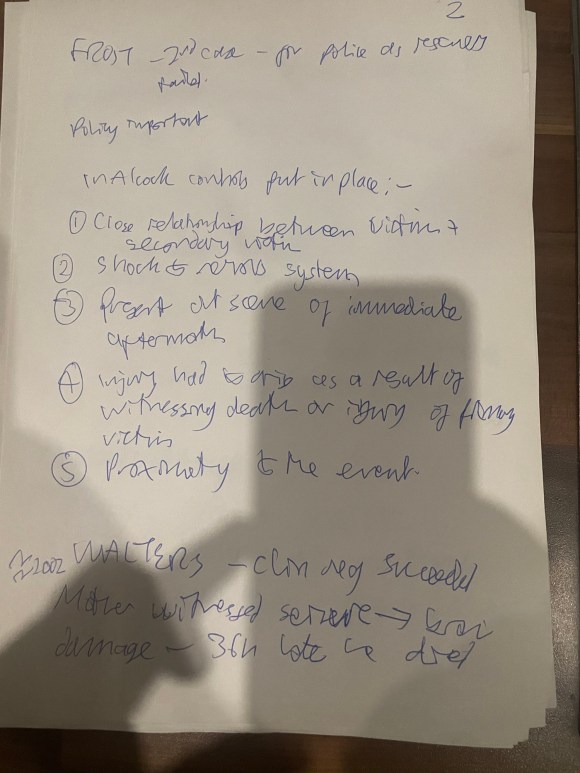 2
FROST - 2nd case - for police as rescuers
failed.
Policy important
in Alcock controls put in place;-
① Close relationship between victim +
secondary victim
② Shock to nervous system
③ Present at scene of immediate
aftermath
④ injury had to arise as a result of
witnessing death or injury of primary
victim
⑤ Proximity to the event.
2002 WALTERS - clin neg succeeded
Mother witnessed seizure → brain
damage - 36h late he died